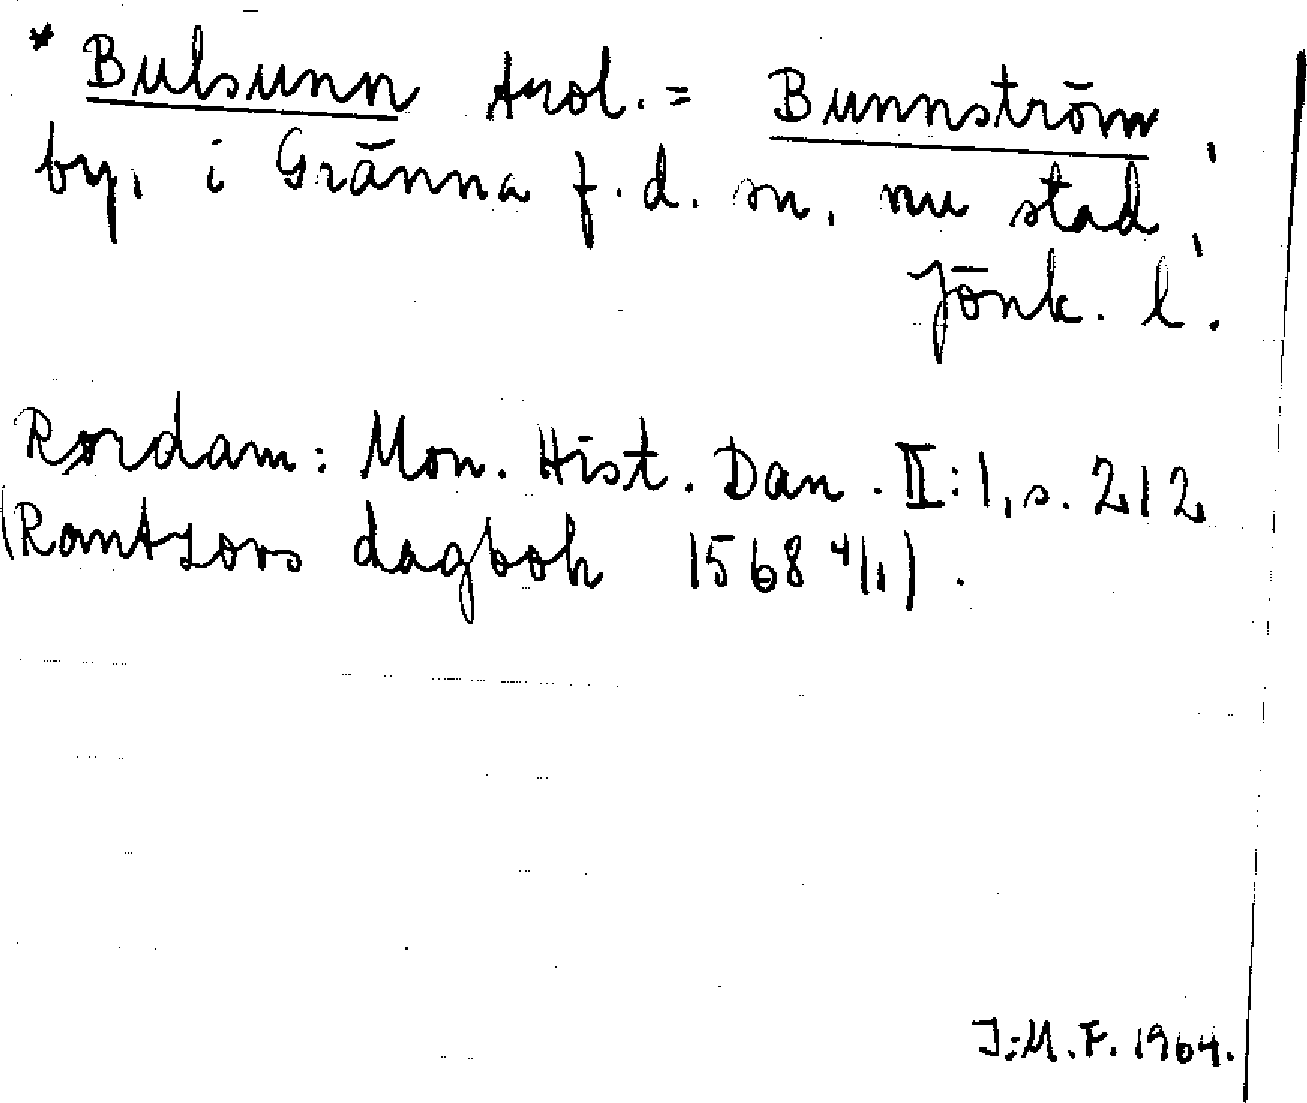 * Bulsunn trol. = Bunnström,
by, i Gränna f.d. sn, nu stad,
Jönk. l.
Rørdam: Mon. Hist. Dan. II:1, s. 212
(Rantzovs dagbok 1568 4/1).
J:M.F. 1964.